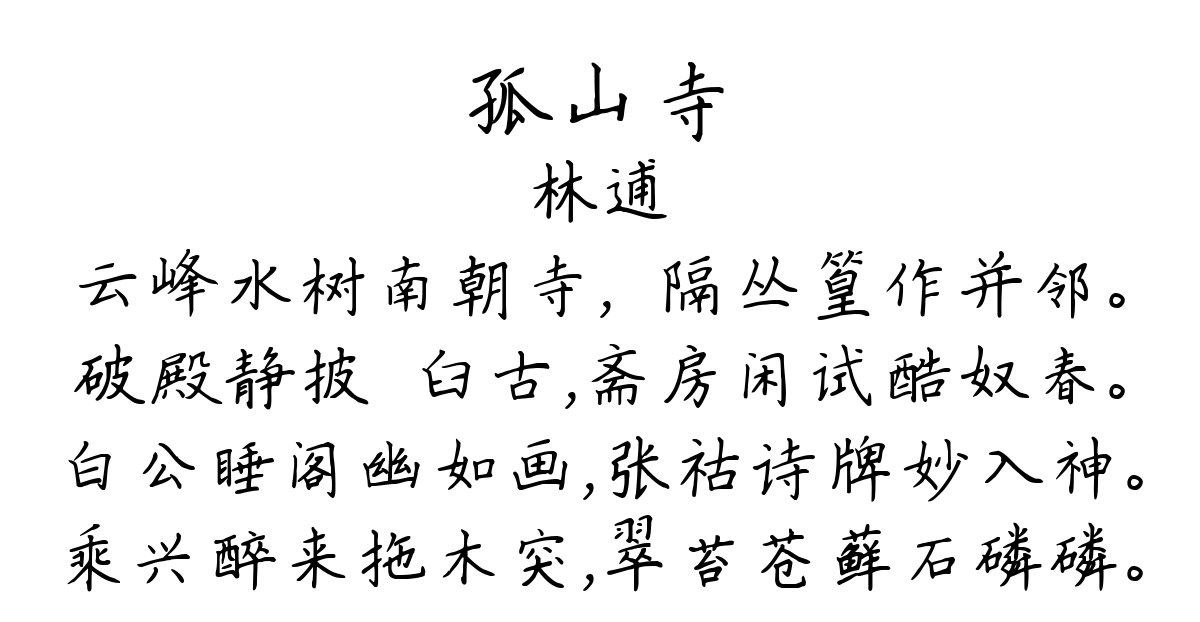 孤山寺
林逋
云峰水树南朝寺，隔丛篁作并邻。
破殿静披 臼古,斋房闲试酷奴春。
白公睡阁幽如画,张祜诗牌妙入神。
乘兴醉来拖木突,翠苔苍藓石磷磷。